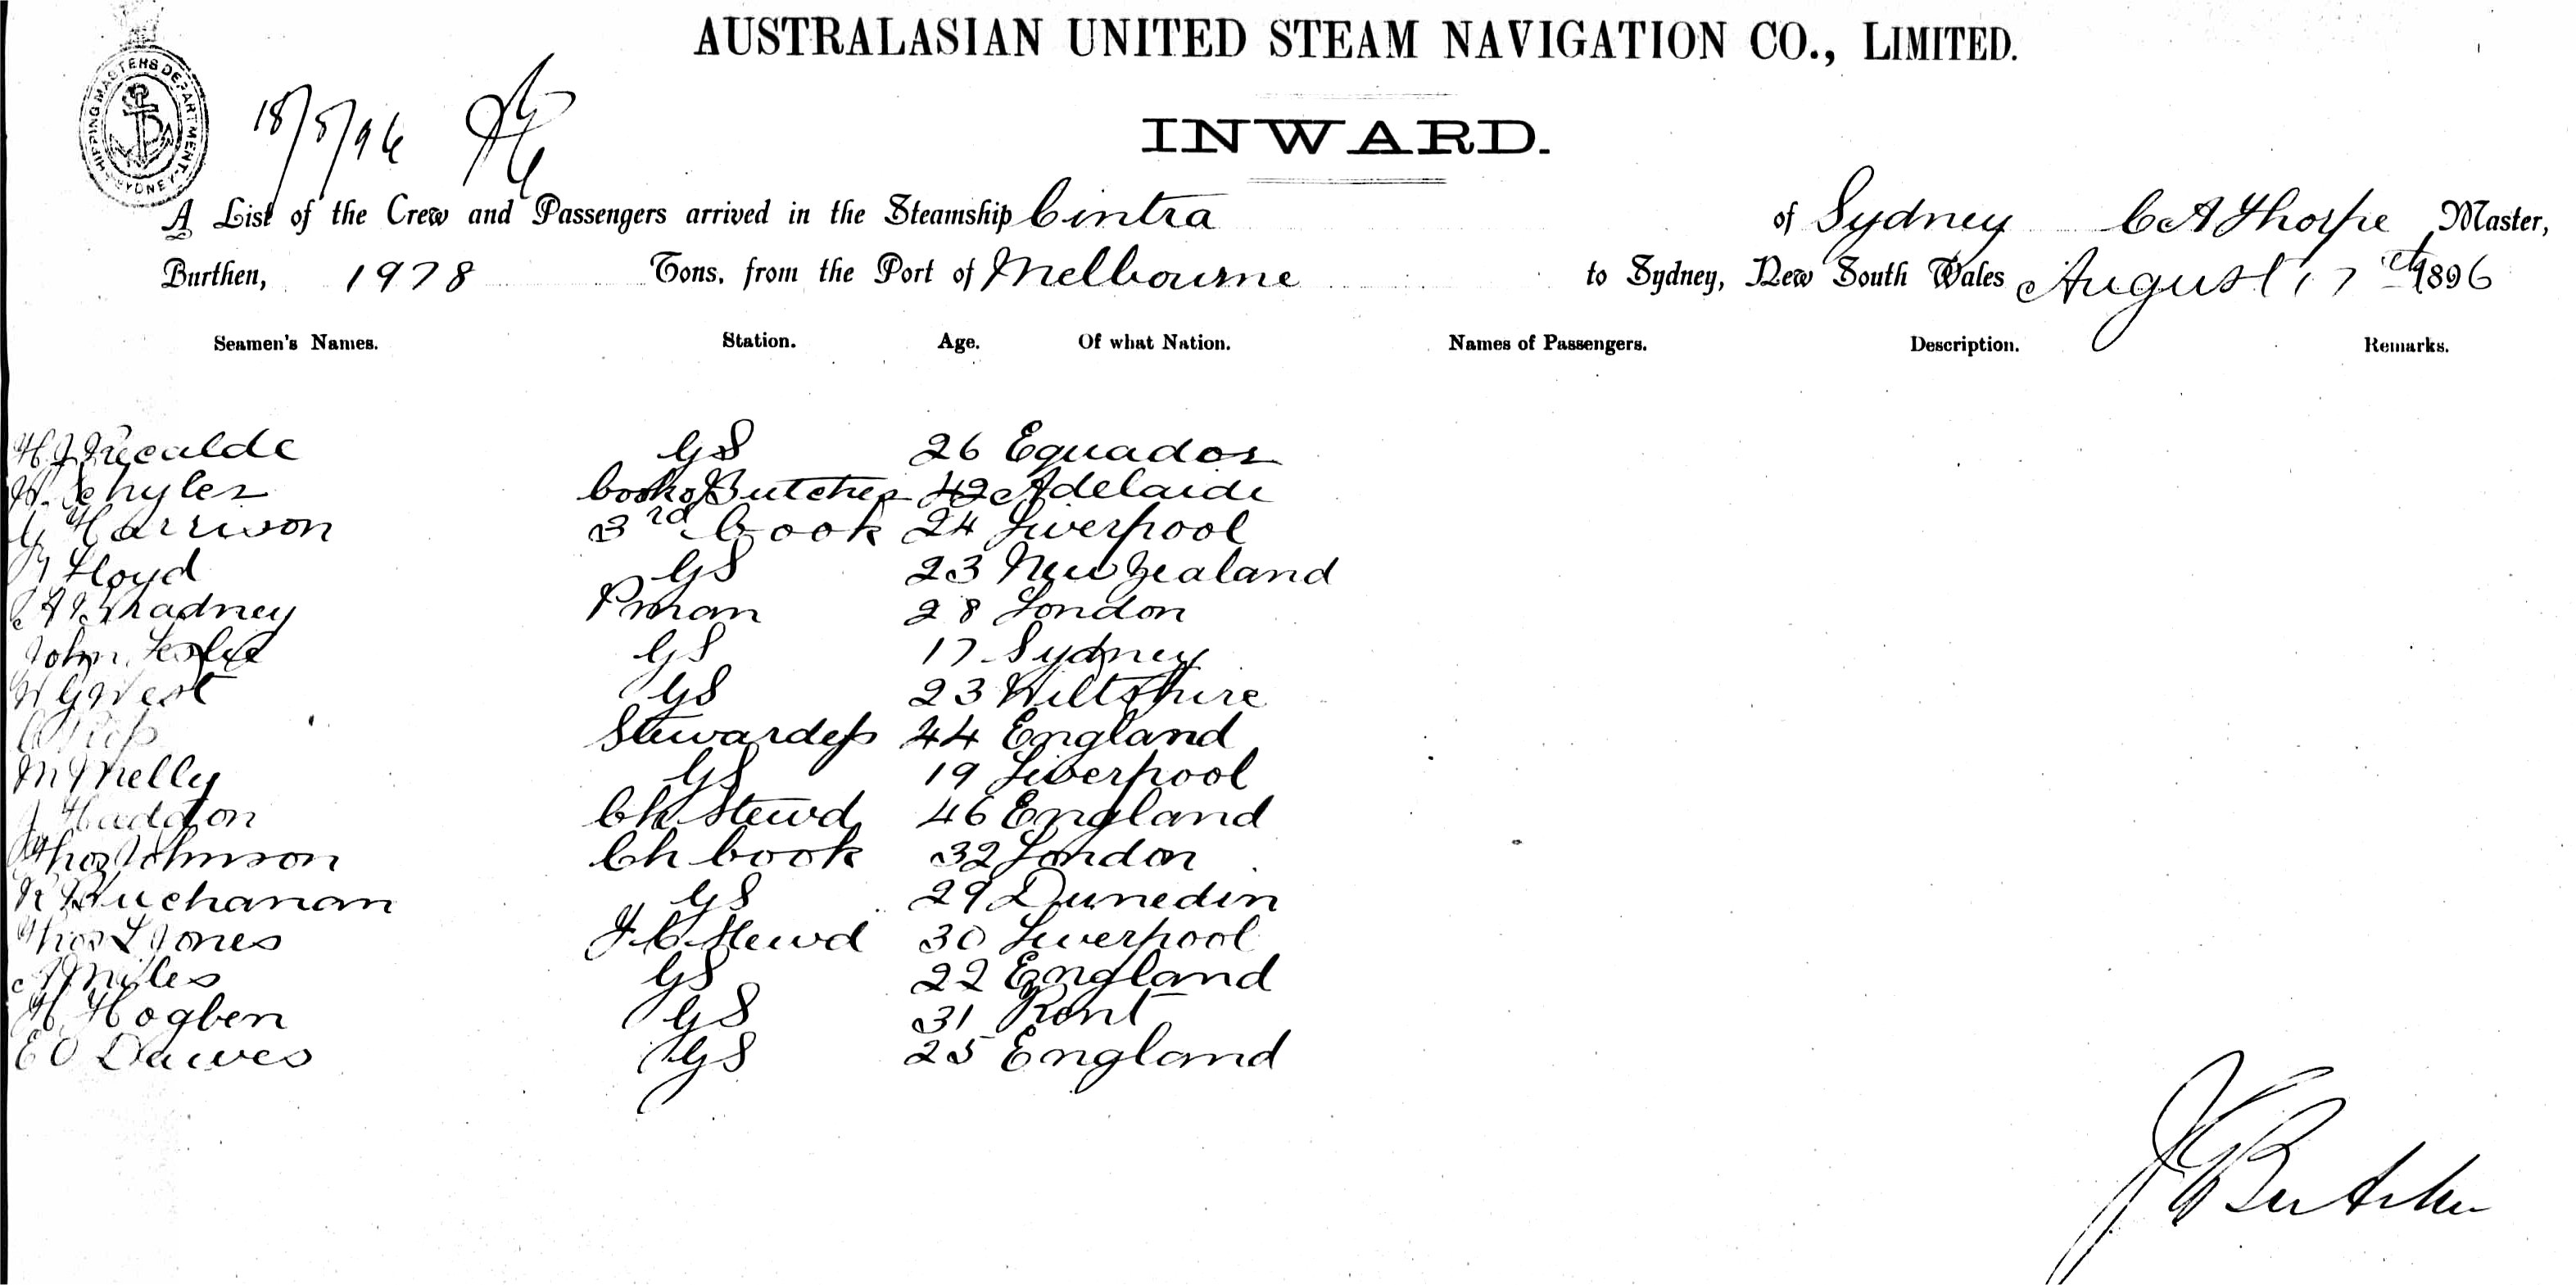 AUSTRALASIAN UNITED STEAM NAVIGATION CO., LIMITED.
SHIPPING MASTERS DEPARTMENT SYDNEY
18/8/96
INWARD.
A List of the Crew and Passengers arrived in the Steamship Cintra of Sydney C A Thorpe Master,
Burthen, 1978 Tons, from the Port of Melbourne to Sydney, New South Wales August 17th 1896
Seamen's Names. Station. Age. Of what Nation. Names of Passengers. Description. Remarks.
GS 26 Equador
Cook & Butcher 42 Adelaide
G Harrison 3rd Cook 24 Liverpool
Lloyd GS 23 New Zealand
Pman 28 London
John Leslie GS 17 Sydney
W G West GS 23 Wiltshire
Stewardess 44 England
M Melly GS 19 Liverpool
J Haddon Ch Stewd 46 England
Thos Johnson Ch Cook 32 London
R Buchanan GS 29 Dunedin
Thos L Jones F C Stewd 30 Liverpool
A Miles GS 22 England
H Hogben GS 31 Kent
E O Dawes GS 25 England